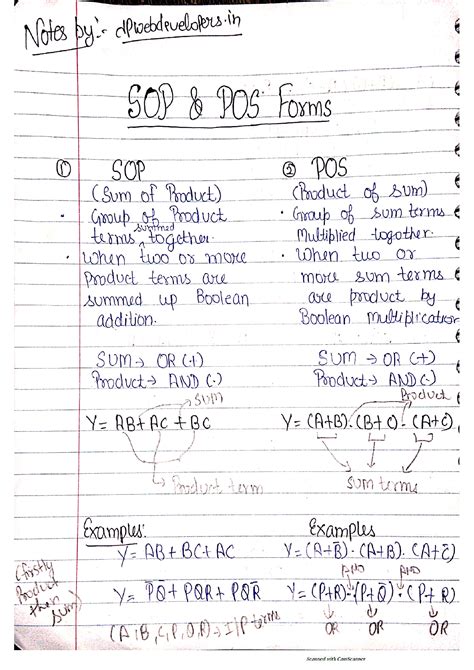 Notes by:- dpwebdevelopers.in
SOP & POS Forms
① SOP
(Sum of Product)
• Group of Product
summed
terms together.
• When two or more
Product terms are
summed up Boolean
addition.
SUM → OR (+)
Product → AND (·)
SUM
Y = AB + AC + BC
Product term
Examples:
Y = AB + BC + AC
(firstly
Product
then
sum)
Y = P̅Q̅ + PQR + PQR̅
(A, B, C, P, Q, R) → I/P terms
② POS
(Product of sum)
• Group of sum terms
Multiplied together.
• When two or
more sum terms
are product by
Boolean Multiplication
SUM → OR (+)
Product → AND (·)
Product
Y = (A+B)·(B+C)·(A+C)
sum terms
Examples
Y = (A+B̅)·(A+B)·(A+C̅)
AND AND
Y = (P+R)·(P+Q̅)·(P+R)
OR OR OR
Scanned with CamScanner